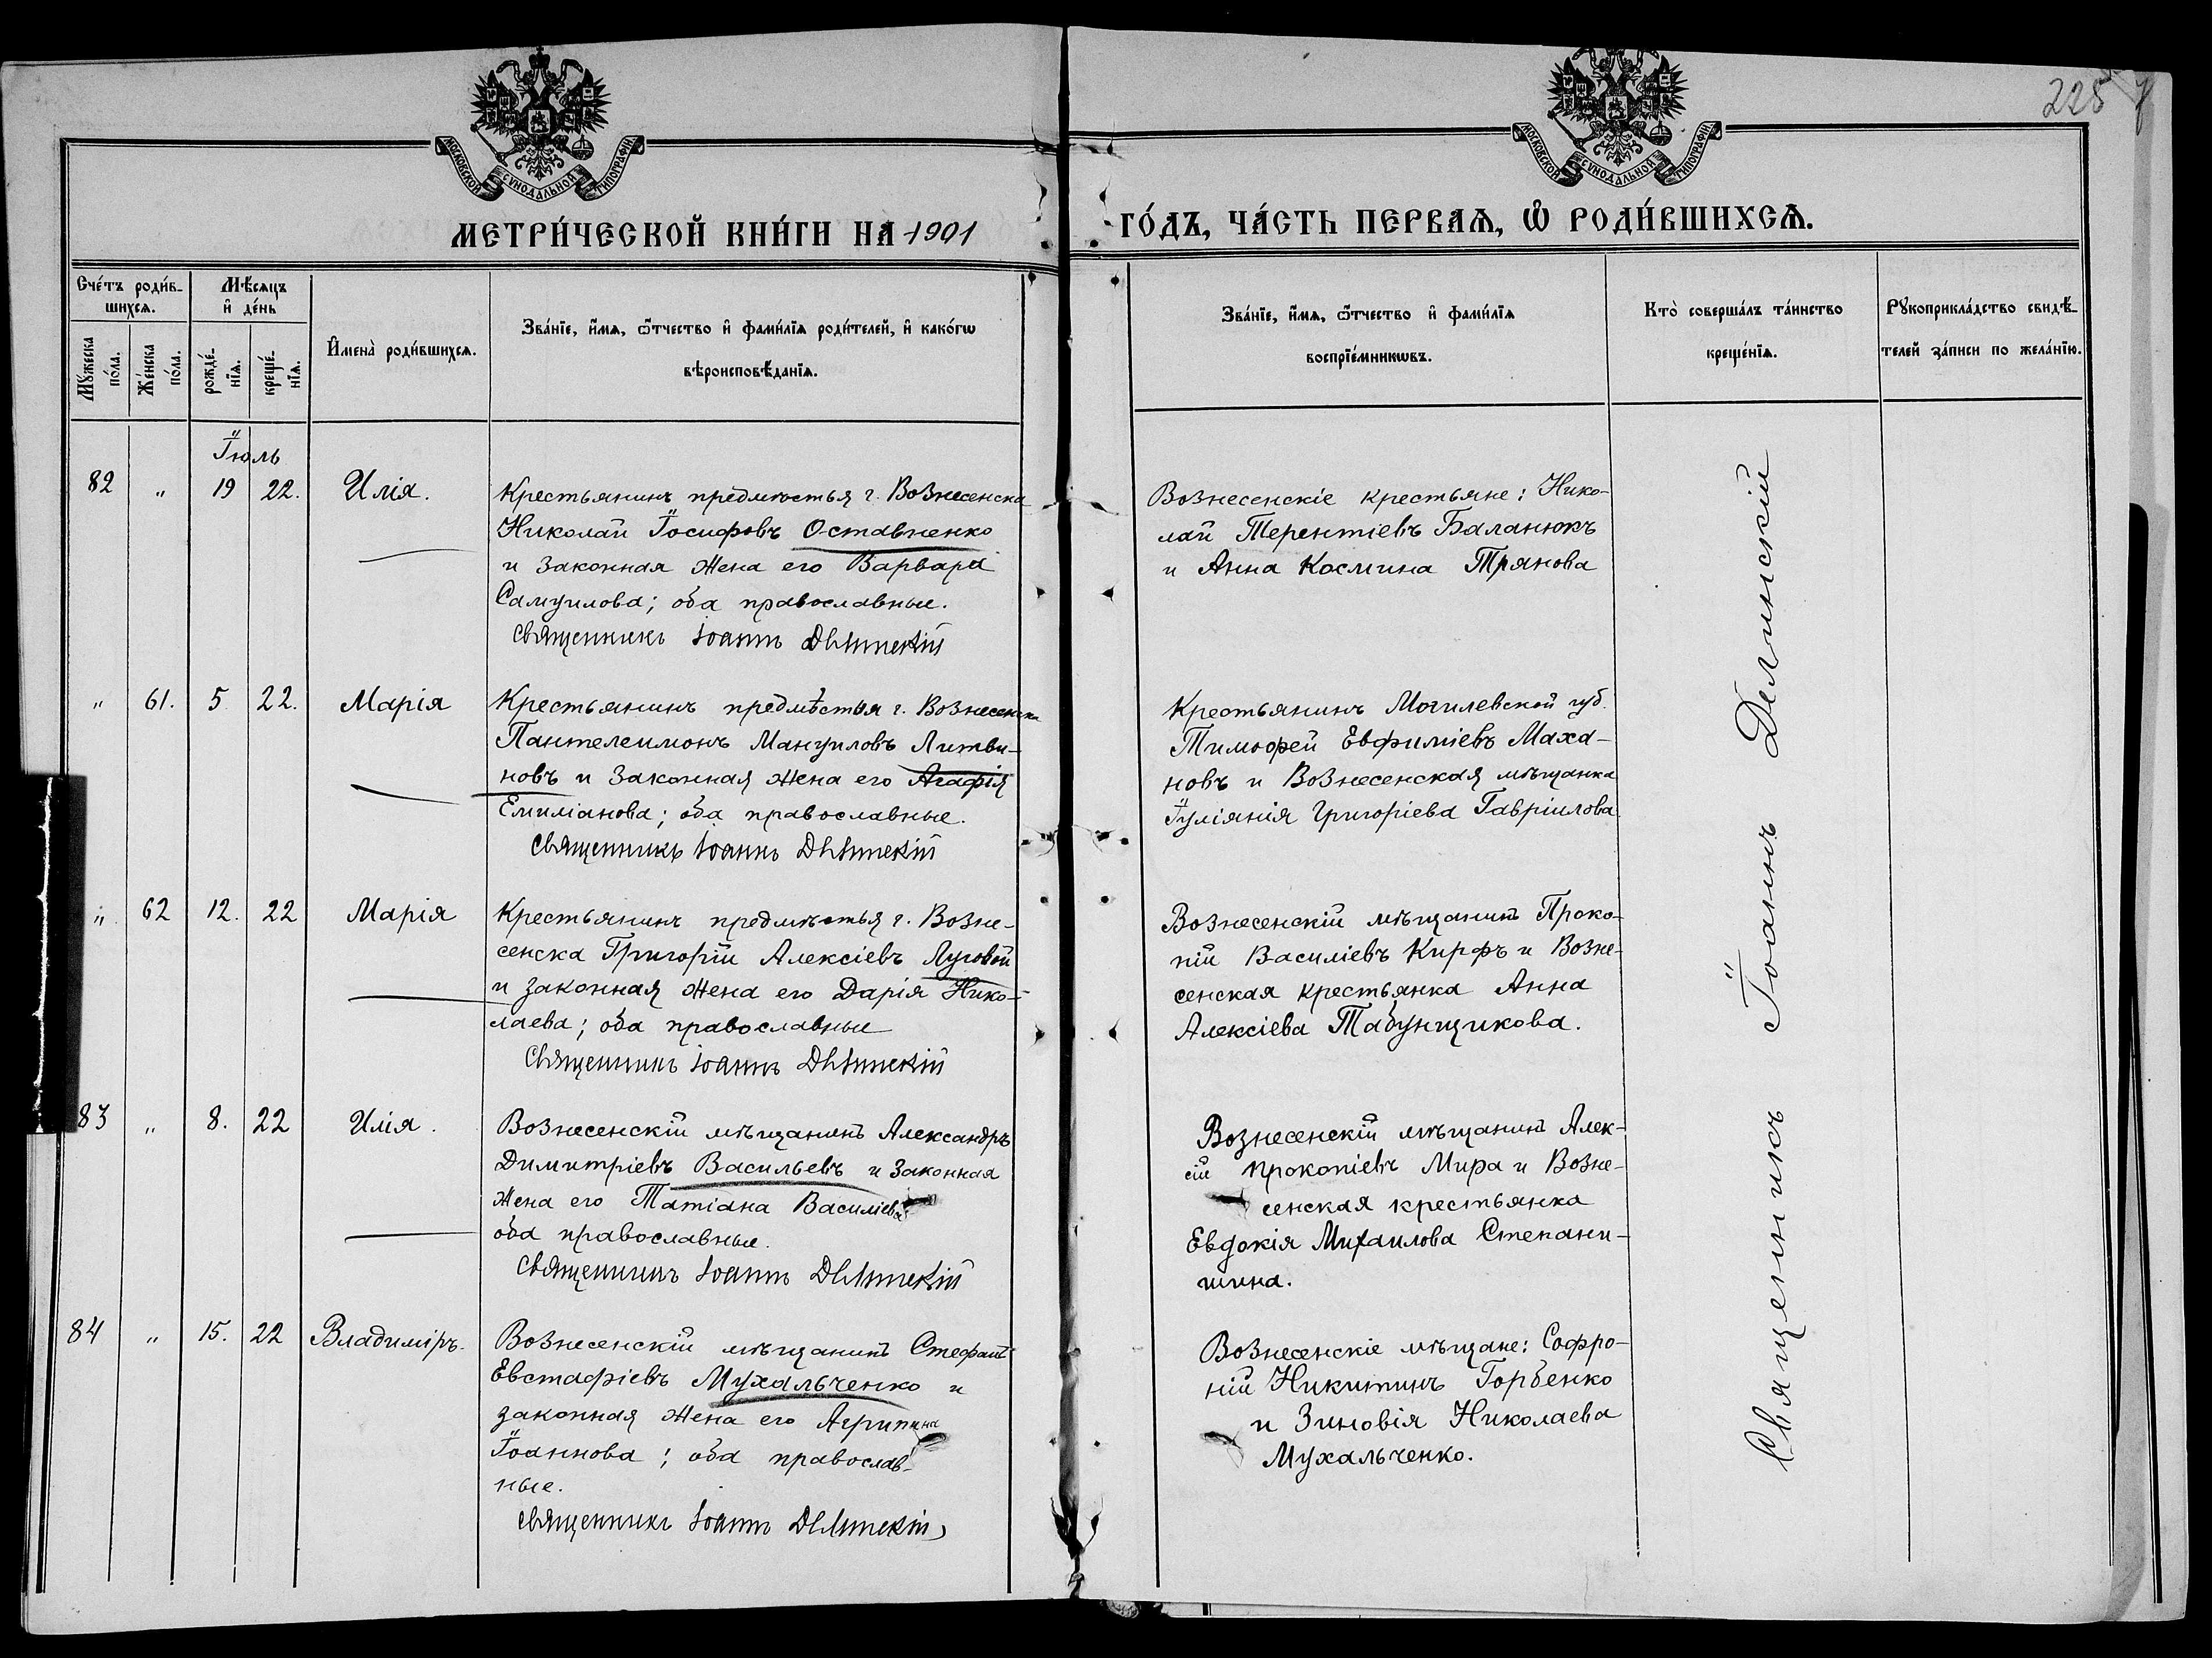 225
МОСКОВСКОЙ СѴНОДАЛЬНОЙ ТИПОГРАФІИ
МОСКОВСКОЙ СѴНОДАЛЬНОЙ ТИПОГРАФІИ
МЕТРИ́ЧЕСКОЙ КНИ́ГИ НА 1901
ГО́ДЪ, ЧА́СТЬ ПЕРВАѦ, Ѡ҆ РОДИ́ВШИХСѦ.
Сче́тъ роди́в-
шихсѧ.
Мꙋ́жеска
по́ла.
Же́нска
по́ла.
Мѣ́сѧцъ
и҆ де́нь
рожде́-
нїѧ.
креще́-
нїѧ.
И҆мена̀ роди́вшихсѧ.
Зва́нїе, и҆́мѧ, ѻ҆́тчество и҆ фами́лїѧ роди́телей, и҆ како́гѡ
вѣроисповѣ́данїѧ.
Зва́нїе, и҆́мѧ, ѻ҆́тчество и҆ фами́лїѧ
воспрїе́мникѡвъ.
Кто̀ соверша́лъ та́инство
креще́нїѧ.
Рꙋкоприкла́дство свидѣ́-
телей за́писи по жела́нїю.
Іюль
82 " 19 22. Илія.
Крестьянинъ предмѣстья г. Вознесенска
Николай Іосифовъ Оставненко
и законная жена его Варвара
Самуилова; оба православные.
Священникъ Іоаннъ Делинскій
Вознесенскіе крестьяне: Нико-
лай Терентіевъ Баланюкъ
и Анна Космина Трянова
" 61. 5 22. Марія
Крестьянинъ предмѣстья г. Вознесенска
Пантелеимонъ Мануиловъ Литви-
новъ и законная жена его Агафія
Емиліанова; оба православные.
Священникъ Іоаннъ Делинскій
Крестьянинъ Могилевской губ.
Тимоѳей Евфиміевъ Маха-
новъ и Вознесенская мѣщанка
Іуліянія Григоріева Гавріилова
" 62 12. 22 Марія
Крестьянинъ предмѣстья г. Возне-
сенска Григорій Алексіевъ Луговой
и законная жена его Дарія Нико-
лаева; оба православные
Священникъ Іоаннъ Делинскій
Вознесенскій мѣщанинъ Проко-
пій Василіевъ Кирфъ и Возне-
сенская крестьянка Анна
Алексіева Табунщикова.
83 " 8. 22 Илія.
Вознесенскій мѣщанинъ Александръ
Димитріевъ Васильевъ и законная
жена его Татіана Василіева
оба православные.
Священникъ Іоаннъ Делинскій
Вознесенскій мѣщанинъ Алек-
сій Прокопіевъ Мира и Возне-
сенская крестьянка
Евдокія Михаилова Степани-
шина.
84 " 15. 22 Владиміръ.
Вознесенскій мѣщанинъ Стефанъ
Евстафіевъ Мухальченко и
законная жена его Агрипина
Іоаннова; оба православ-
ные.
Священникъ Іоаннъ Делинскій
Вознесенскіе мѣщане: Софро-
ній Никитинъ Горбенко
и Зиновія Николаева
Мухальченко.
Священникъ Іоаннъ Делинскій